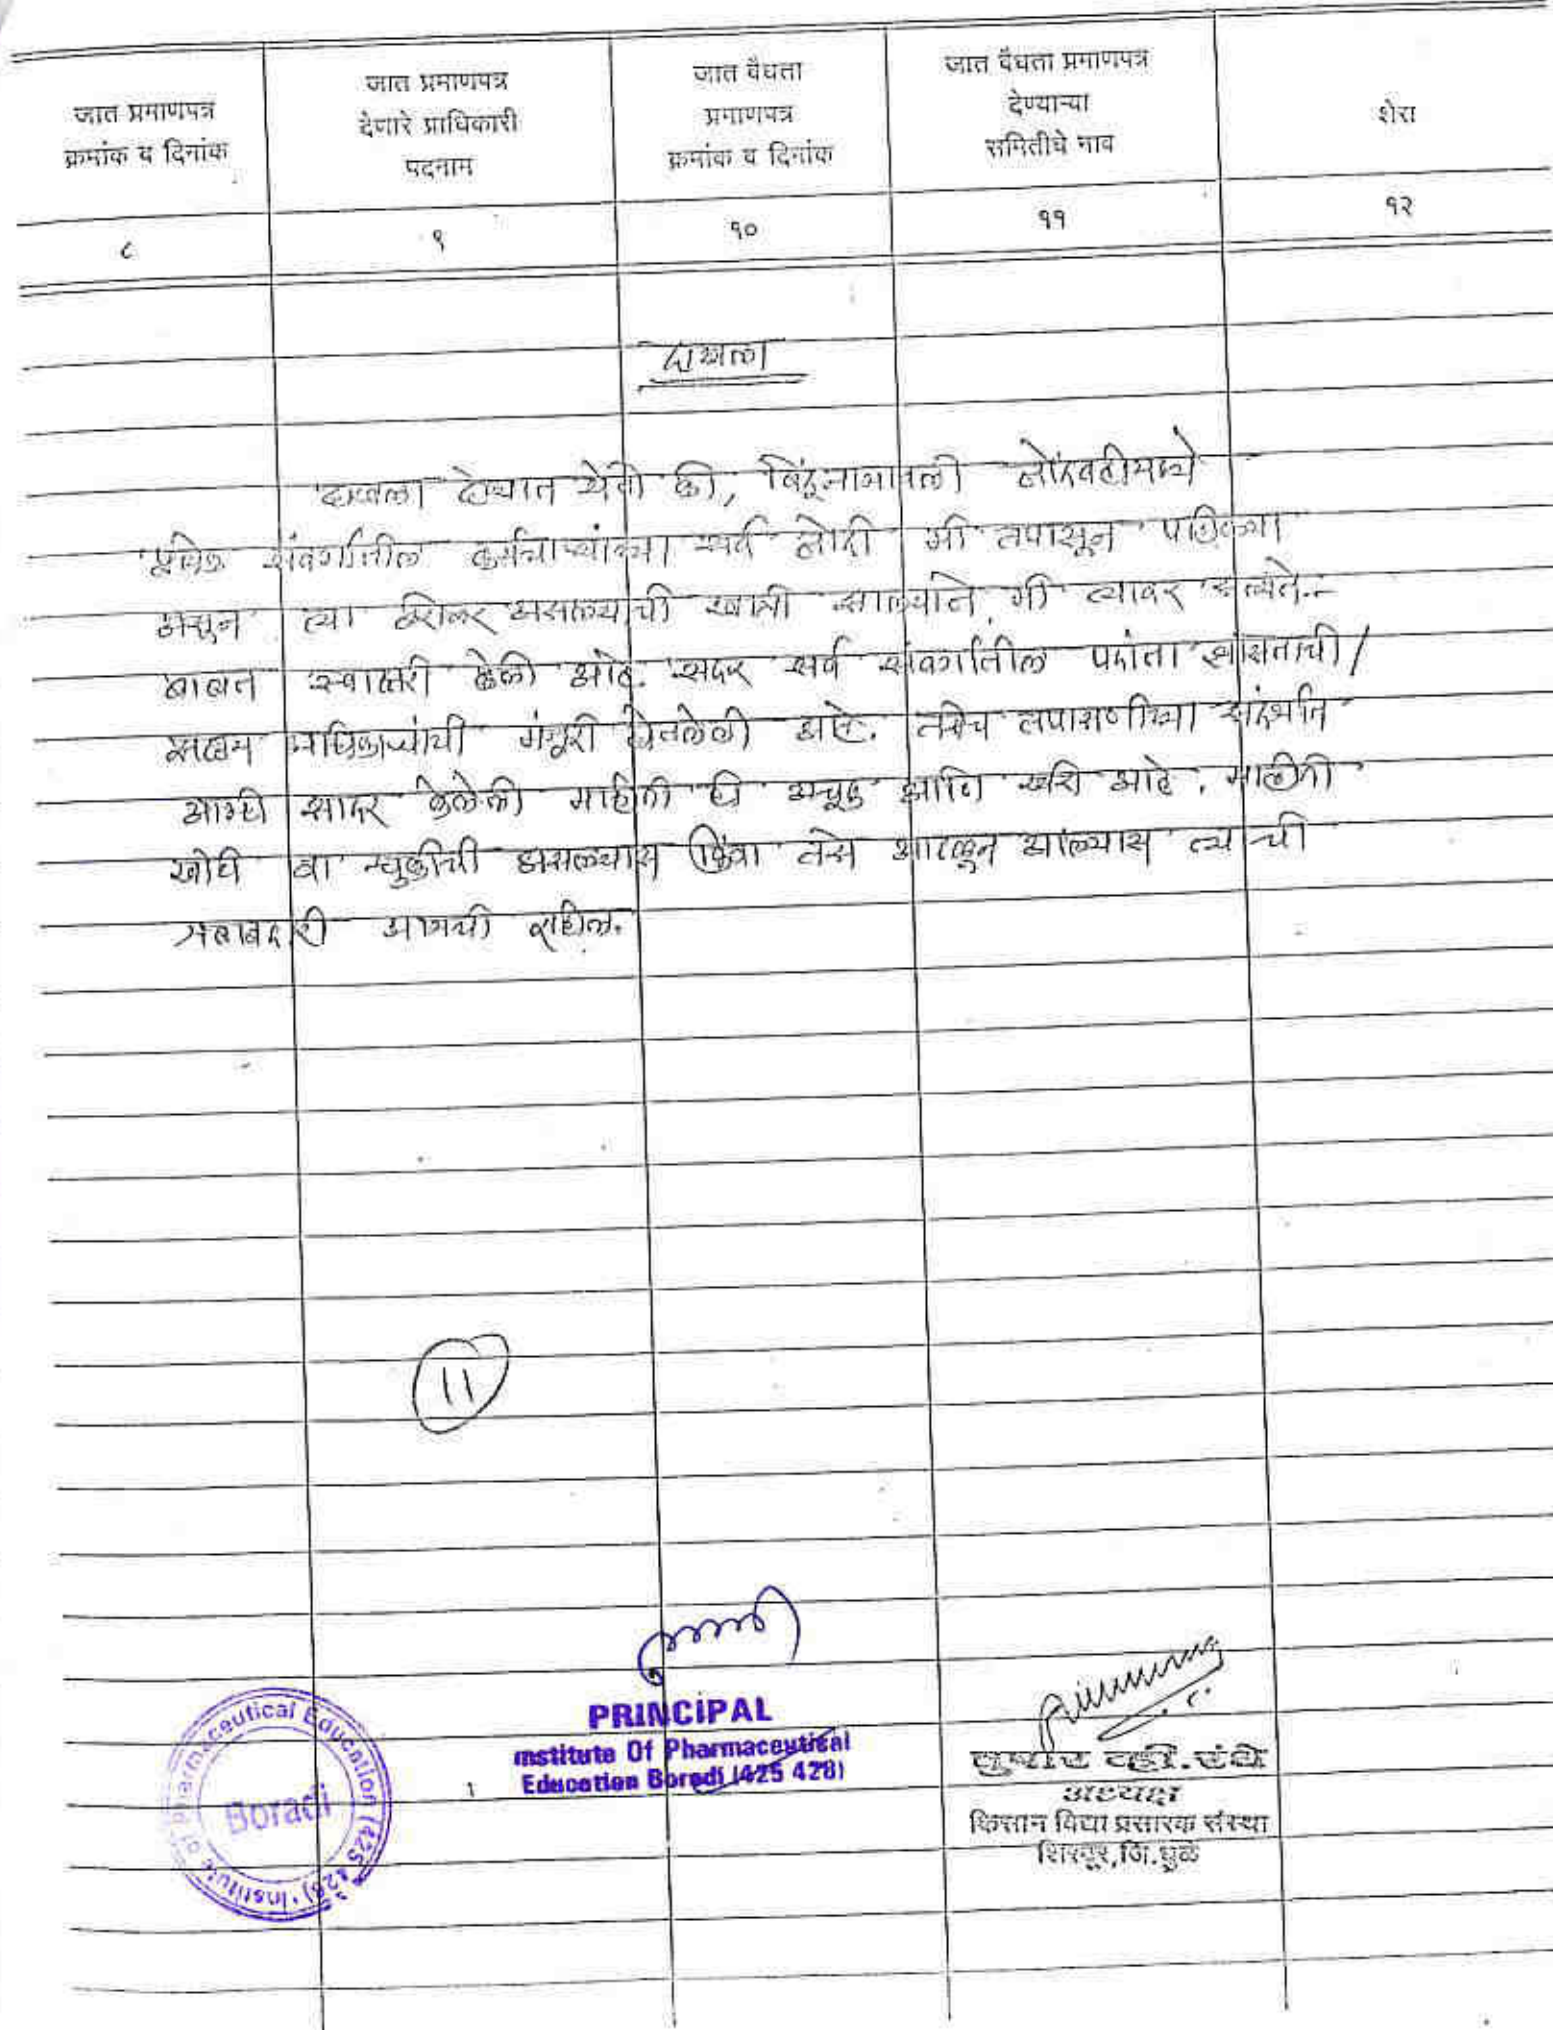 जात प्रमाणपत्र
क्रमांक व दिनांक
जात प्रमाणपत्र
देणारे प्राधिकारी
पदनाम
जात वैधता
प्रमाणपत्र
क्रमांक व दिनांक
जात वैधता प्रमाणपत्र
देण्याऱ्या
समितीचे नाव
शेरा
८ ९ १० ११ १२
दाखला
दाखला देण्यात येतो की, बिंदूनामावली नोंदवहीमध्ये
प्रत्येक संवर्गातील कर्मचाऱ्यांच्या सर्व नोंदी मी तपासून पाहिल्या
असून त्या बरोबर असल्याची खात्री झाल्याने मी त्यावर सत्यते-
बाबत स्वाक्षरी केली आहे. सदर सर्व संवर्गातील पदांना शासनाची/
सक्षम प्राधिकाऱ्यांची मंजूरी घेतलेली आहे. तसेच तपासणीच्या संदर्भात
आम्ही सादर केलेली माहिती ही अचूक आणि खरी आहे. माहिती
खोटी वा चुकीची असल्यास किंवा तसे आढळून आल्यास त्याची
जबाबदारी आमची राहील.
11
PRINCIPAL
nstitute Of Pharmaceutical
Education Boradi (425 428)
Institute of Pharmaceutical Education (425 428)
Boradi
अध्यक्ष
किसान विद्या प्रसारक संस्था
शिरपूर, जि.धुळे